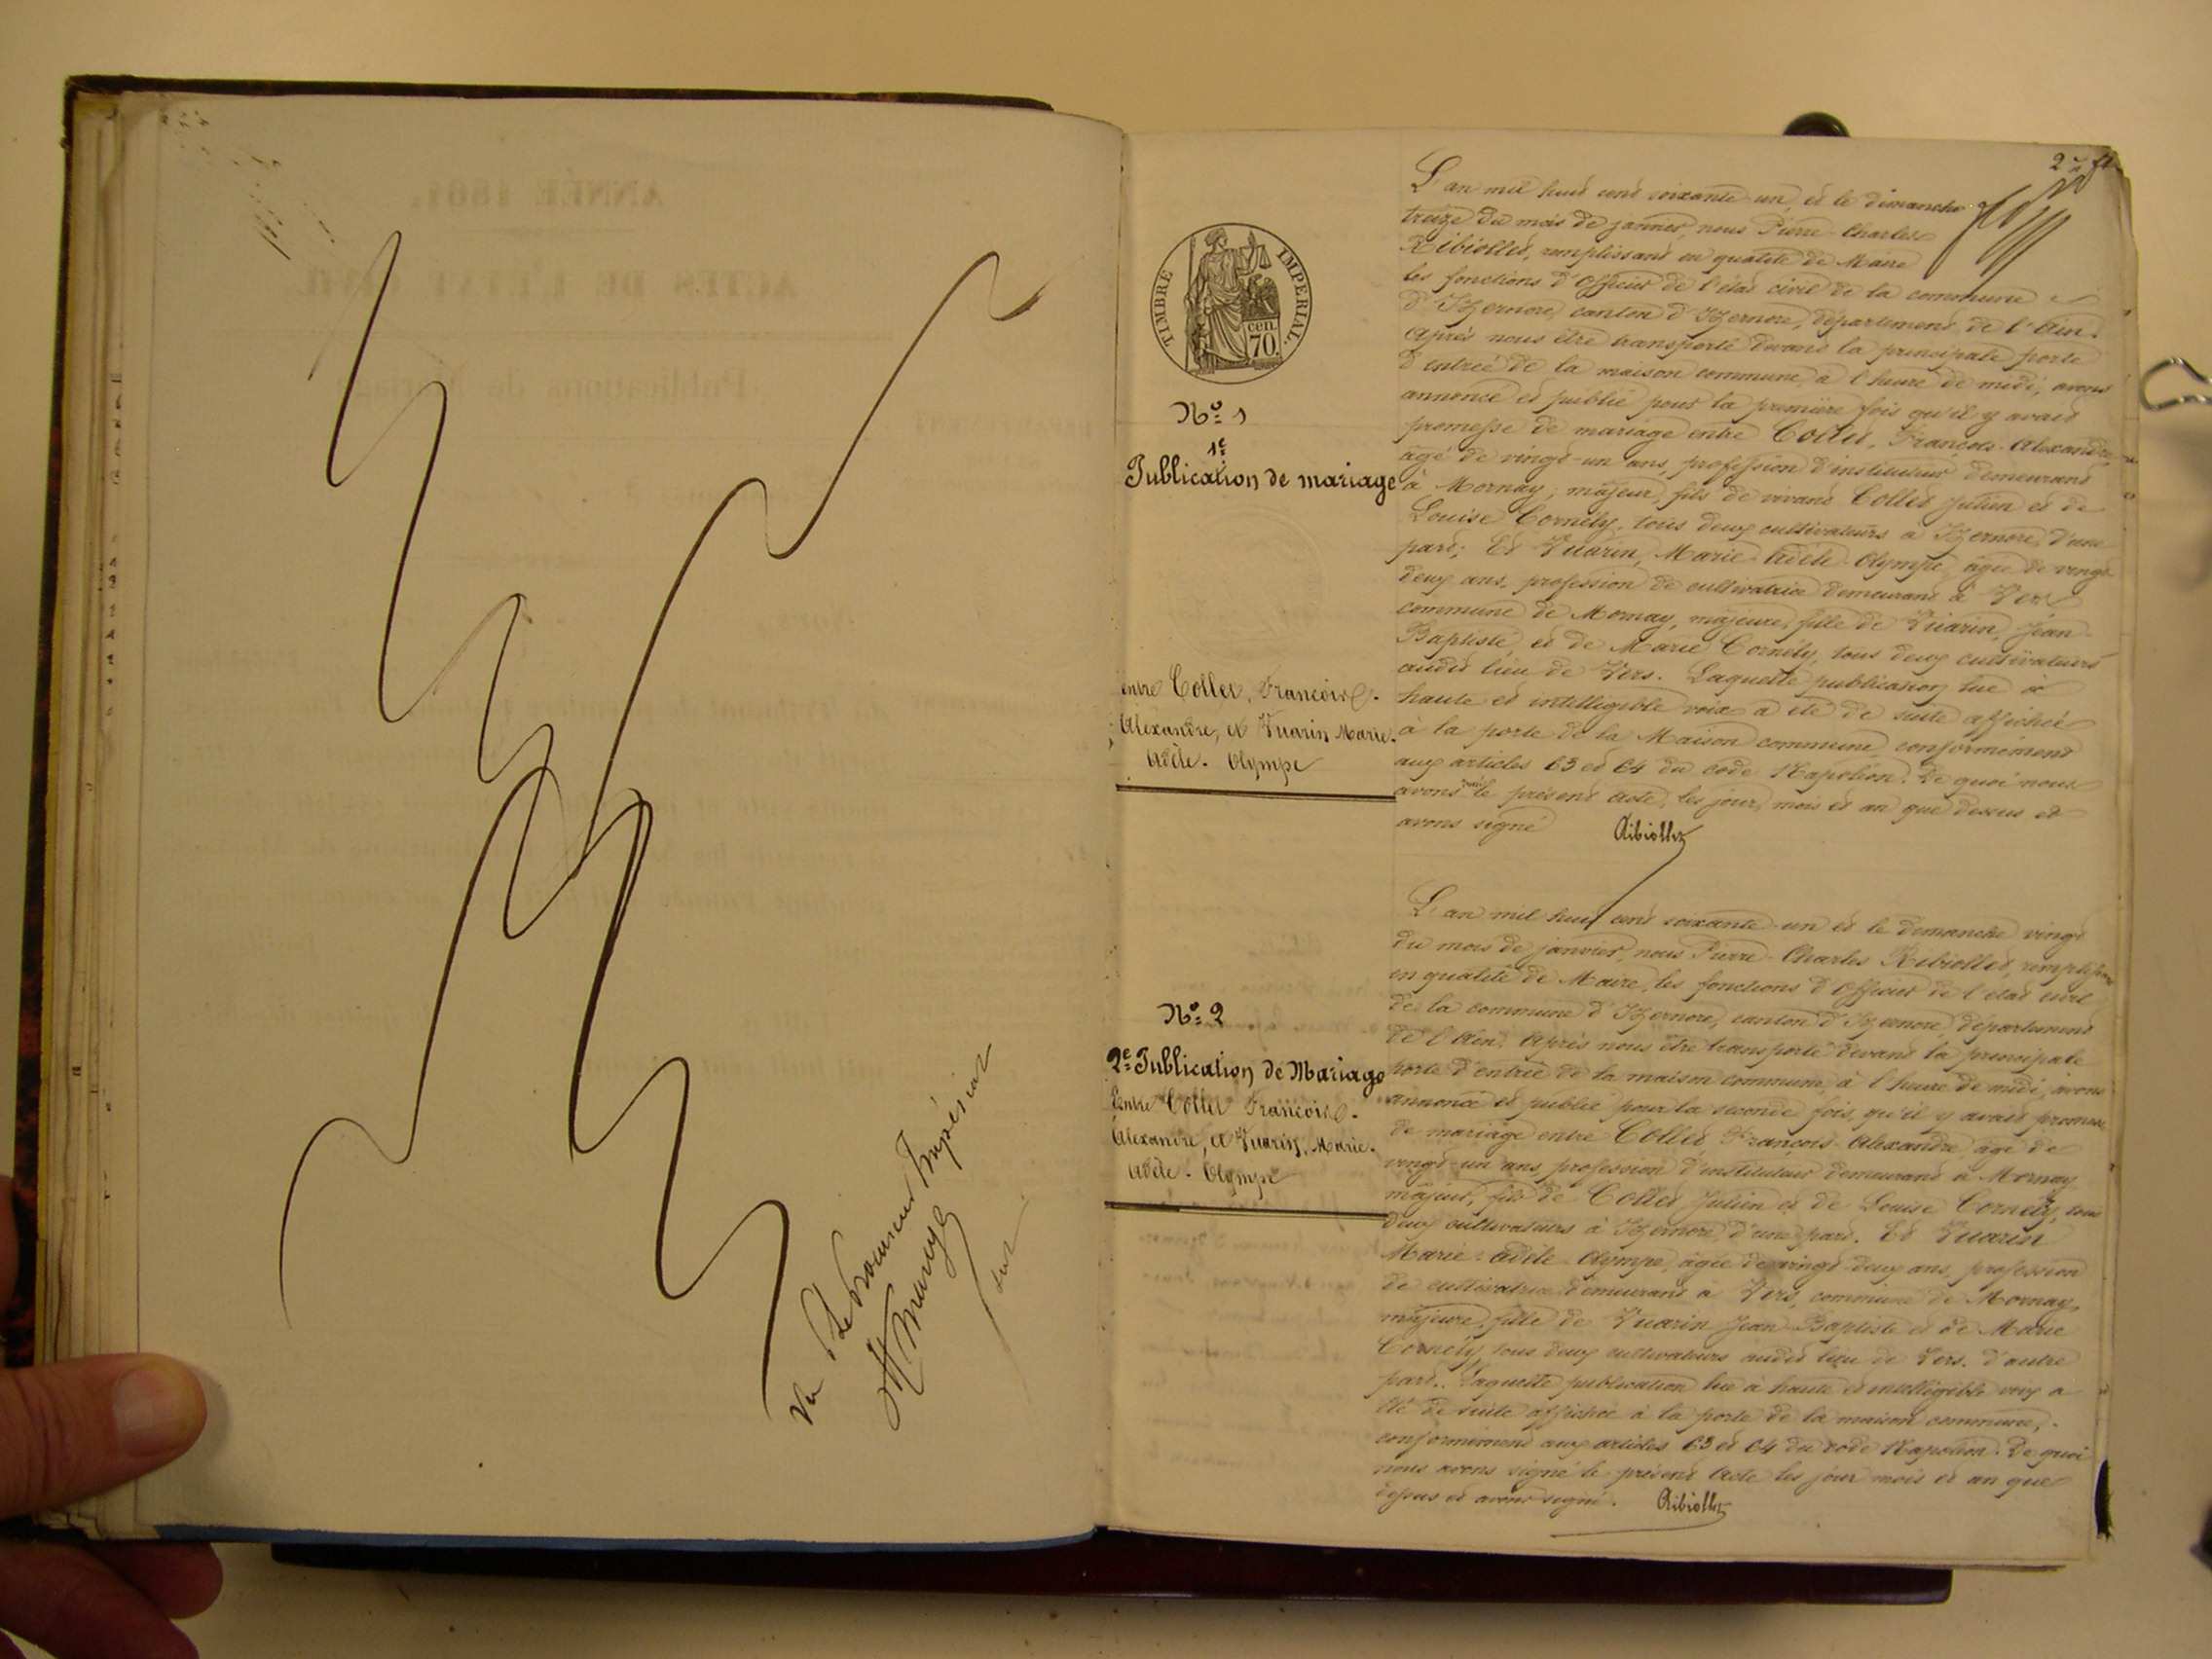 Vu
Le Procureur Impérial
TIMBRE IMPERIAL.
cen.
70.
2
N° 1
1e
Publication de mariage
entre Collet, François-
Alexandre, et Vuarin Marie-
Adèle-Olympe
L'an mil huit cent soixante-un, et le dimanche
treize du mois de janvier, nous Pierre-Charles
Ribiollet, remplissant en qualité de Maire
les fonctions d'Officier de l'état civil de la commune
d'Izernore, canton d'Izernore, département de l'Ain.
Après nous être transporté devant la principale porte
d'entrée de la maison commune, à l'heure de midi, avons
annoncé et publié pour la première fois qu'il y avait
promesse de mariage entre Collet, François-Alexandre,
âgé de vingt-un ans, profession d'instituteur demeurant
à Mornay, majeur, fils de vivant Collet Julien et de
Louise Cornély, tous deux cultivateurs à Izernore, d'une
part; Et Vuarin, Marie-Adèle-Olympe, âgée de vingt-
deux ans, profession de cultivatrice demeurant à Vers
commune de Mornay, majeure, fille de Vuarin, Jean-
Baptiste, et de Marie Cornély, tous deux cultivateurs
audit lieu de Vers. Laquelle publication lue à
haute et intelligible voix a été de suite affichée
à la porte de la Maison commune, conformément
aux articles 63 et 64 du code Napoléon. De quoi nous
avons le présent acte, les jour, mois et an que dessus et
avons signé Ribiollet
N° 2
2e Publication de Mariage
Entre Collet François-
Alexandre, et Vuarin, Marie-
Adèle-Olympe
L'an mil huit cent soixante-un et le dimanche vingt
du mois de janvier, nous Pierre-Charles Ribiollet, remplissant
en qualité de Maire, les fonctions d'Officier de l'état civil
de la commune d'Izernore, canton d'Izernore département
de l'Ain. Après nous être transporté devant la principale
porte d'entrée de la maison commune, à l'heure de midi, avons
annoncé et publié pour la seconde fois, qu'il y avait promesse
de mariage entre Collet François-Alexandre, âgé de
vingt-un ans, profession d'instituteur demeurant à Mornay
majeur, fils de Collet Julien et de Louise Cornély, tous
deux cultivateurs à Izernore, d'une part. Et Vuarin
Marie-Adèle-Olympe, âgée de vingt-deux ans, profession
de cultivatrice demeurant à Vers, commune de Mornay,
majeure, fille de Vuarin Jean-Baptiste et de Marie
Cornély, tous deux cultivateurs audit lieu de Vers. d'autre
part. Laquelle publication lue à haute et intelligible voix a
été de suite affichée à la porte de la maison commune,
conformément aux articles 63 et 64 du code Napoléon. De quoi
nous avons signé le présent acte les jour mois et an que
dessus et avons signé. Ribiollet